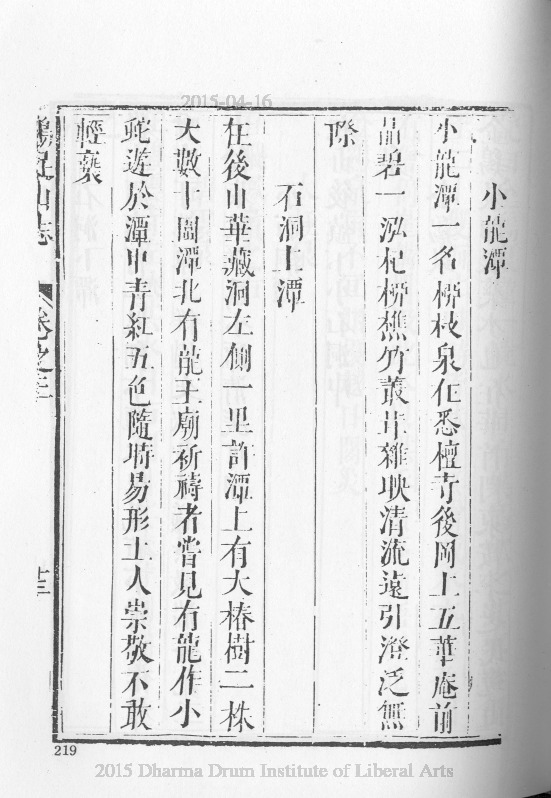 2015-04-16
小龍潭
小龍潭一名枬枝泉在悉檀寺後岡上五華庵前
晶碧一泓杞枬樵竹叢生雜映清流遠引澄泛無
際
石洞上潭
在後山華藏洞左側一里許潭上有大椿樹二株
大數十圍潭北有龍王廟祈禱者嘗見有龍作小
蛇遊於潭中青紅五色隨時易形土人崇敬不敢
輕褻
雞足山志
卷之三
十三
219
2015 Dharma Drum Institute of Liberal Arts